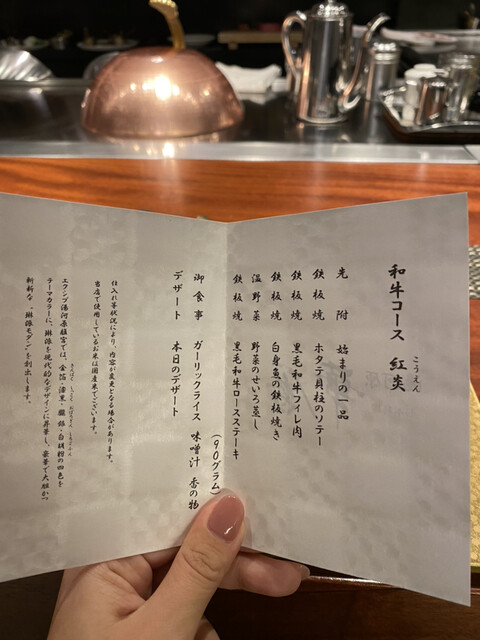 和牛コース 紅炎
こうえん
先附 始まりの一品
鉄板焼 ホタテ貝柱のソテー
鉄板焼 黒毛和牛フィレ肉
鉄板焼 白身魚の鉄板焼き
温野菜 野菜のせいろ蒸し
鉄板焼 黒毛和牛ロースステーキ
(90グラム)
御食事 ガーリックライス 味噌汁 香の物
デザート 本日のデザート
仕入れ等状況により、内容が変更となる場合があります。
当店で使用しているお米は国産米でございます。
エクシブ湯河原離宮では、金箔・漆黒・朧銀・白胡粉の四色を
テーマカラーに、琳派を現代的なデザインに昇華し、豪華で大胆かつ
斬新な、琳派モダンを創出します。